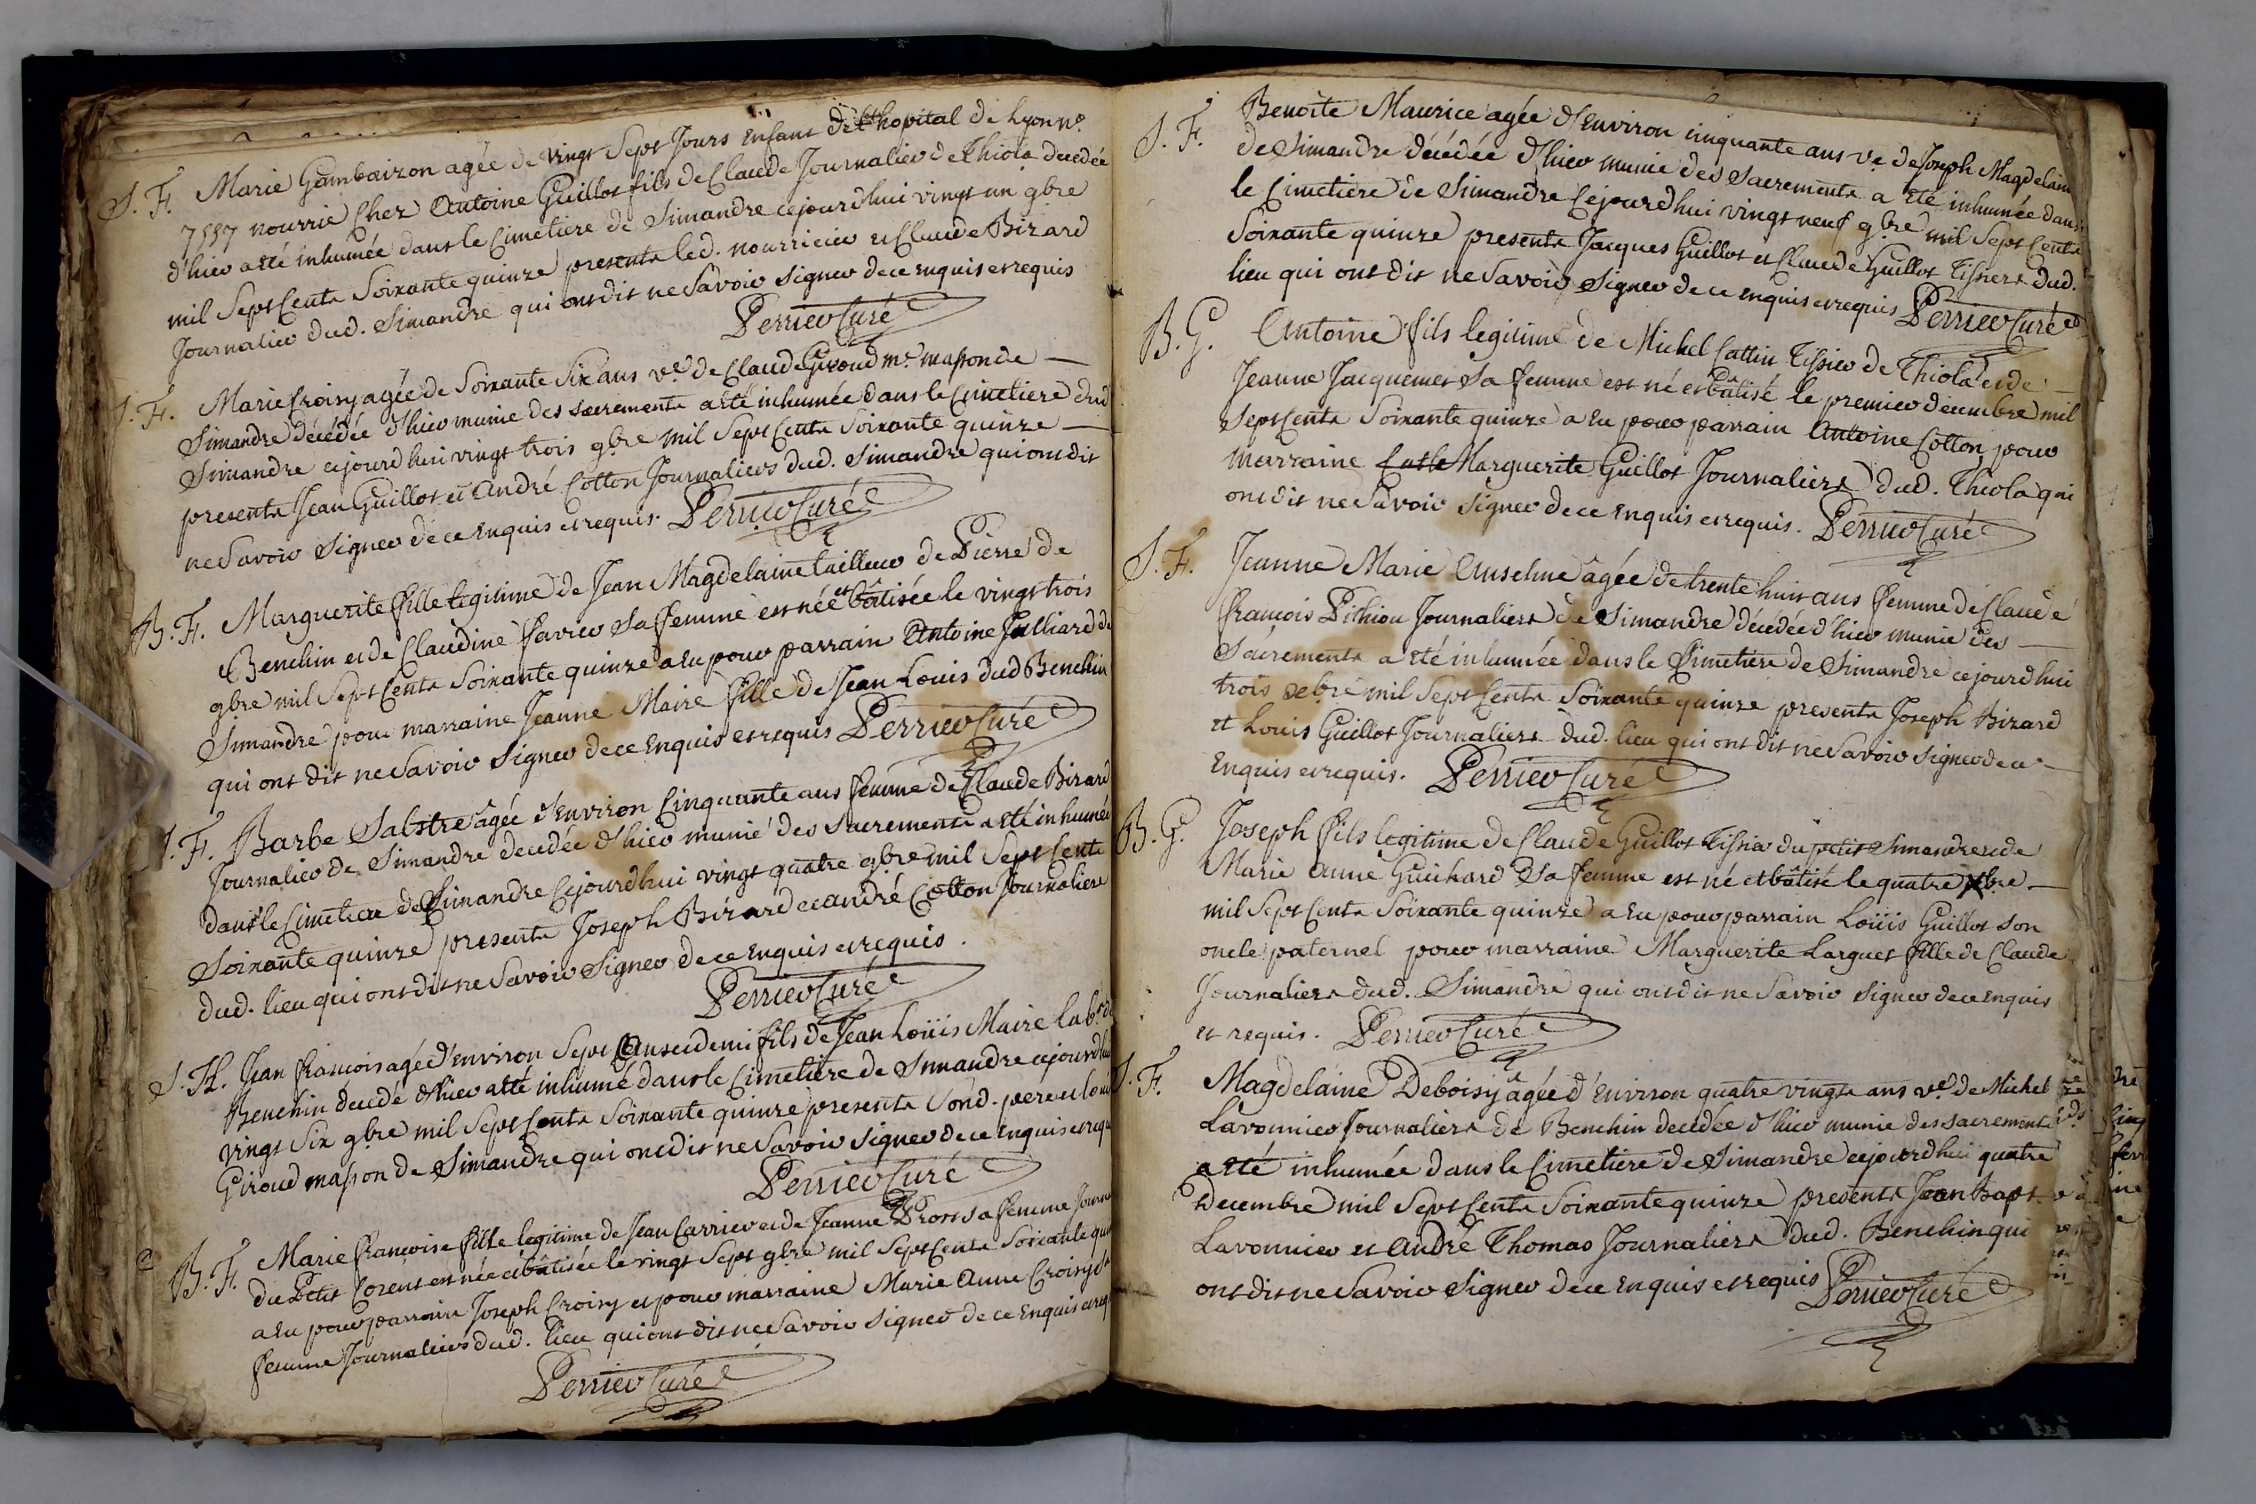 S. F. Marie Gambairon agée de vingt Sept Jours Enfant de l'hopital de Lyon n.°
7557 nourrie Chez Antoine Guillot fils de Claude Journalier de Thiola decedée
d'hier a été inhumée dans le Cimetiere de Simandre cejourdhui vingt un 9bre
mil Sept Cents Soixante quinze presents led. nourricier et Claude Bizard
Journalier dud. Simandre qui ont dit ne Savoir Signer de ce Enquis et requis
Perrier Curé
S. F. Marie Croisy agée de Soixante Six ans v.e de Claude Giroud m.e masson de
Simandre décédée d'hier munie des sacrements a été inhumée dans le Cimetiere dud
Simandre cejourdhui vingt trois 9bre mil Sept Cents Soixante quinze
presents Jean Guillot et André Cotton Journaliers dud. Simandre qui ont dit
ne Savoir Signer de ce Enquis et requis. Perrier Curé
B. F. Marguerite fille legitime de Jean Magdelaine tailleur de Pierre de
Benchin et de Claudine favier Sa femme est née et bâtisée le vingt trois
9bre mil Sept Cents Soixante quinze a Eu pour parrain Antoine Julliard de
Simandre pour marraine Jeanne Maire fille de Jean Louis dud Benchin
qui ont dit ne Savoir Signer de ce Enquis et requis Perrier Curé
S. F. Barbe Sabstre agée d'Environ Cinquante ans femme de Claude Bizard
Journalier de Simandre decedée d'hier munie des Sacrements a été inhumée
dans le Cimetiere de Simandre Cejourdhui vingt quatre 9bre mil Sept Cents
Soixante quinze presents Joseph Bizard et andré Cotton Journaliers
dud. lieu qui ont dit ne Savoir Signer de ce Enquis et requis.
Perrier Curé
Jean francois agé d'environ Sept ans et demi fils de Jean Loüis Maire lab.r de
Benchin decedé d'hier a été inhumé dans le Cimetiere de Simandre cejourdhui
vingt Six 9bre mil Sept Cents Soixante quinze presents Sond. pere et Louis
Giroud masson de Simandre qui ont dit ne Savoir Signer de ce Enquis et requis
Perrier Curé
B. F. Marie francoise fille legitime de Jean Carrier et de Jeanne Pron sa femme Journ
du Petit Corent est née et bâtisée le vingt Sept 9bre mil Sept Cents Soixante quin
a Eu pour parrain Joseph Croisy et pour marraine Marie Anne Croisy
femme Journaliers dud. lieu qui ont dit ne Savoir Signer de ce Enquis et req
Perrier Curé
S. F. Benoite Maurice agée d'Environ cinquante ans v.e de Joseph Magdelaine
de Simandre décédée d'hier munie des Sacrements a été inhumée dans
le Cimetiere de Simandre Cejourdhui vingt neuf 9bre mil Sept Cents
Soixante quinze presents Jacques Guillot et Claude Guillot Tissiers dud.
lieu qui ont dit ne Savoir Signer de ce Enquis et requis Perrier Curé
B. G. Antoine fils legitime de Michel Cattin Tissier de Thiola et de
Jeanne Jacquemet Sa femme est né et bâtisé le premier decembre mil
Sept Cents Soixante quinze a Eu pour parrain Antoine Cotton pour
Marraine Marguerite Guillot Journaliers dud. Thiola qui
ont dit ne Savoir Signer de ce Enquis et requis. Perrier Curé
S. F. Jeanne Marie Anselme âgée de trente huit ans femme de Claude
francois Pithiou Journaliers de Simandre décédée d'hier munie des
Sacrements a été inhumée dans le Cimetiere de Simandre cejourdhui
trois xbre mil Sept Cents Soixante quinze presents Joseph Bizard
et Louis Guillot Journaliers dud. lieu qui ont dit ne Savoir Signer de ce
Enquis et requis. Perrier Curé
B. G. Joseph fils legitime de Claude Guillot Tissier du petit Simandre et de
Marie Anne Guichard Sa femme est né et bâtisé le quatre Xbre
mil Sept Cents Soixante quinze a Eu pour parrain Loüis Guillot son
oncle paternel pour marraine Marguerite Larguet fille de Claude
Journaliers dud. Simandre qui ont dit ne Savoir Signer de ce Enquis
et requis. Perrier Curé
S. F. Magdelaine Deboisy âgée d'Environ quatre vingts ans v.e de Michel
Lavonnier Journaliers de Benchin decedée d'hier munie des sacrements
a été inhumée dans le Cimetiere de Simandre cejourdhui quatre
Decembre mil Sept Cents Soixante quinze presents Jean Bapt.
Lavonnier et André Thomas Journaliers dud. Benchin qui
ont dit ne Savoir Signer de ce Enquis et requis Perrier Curé